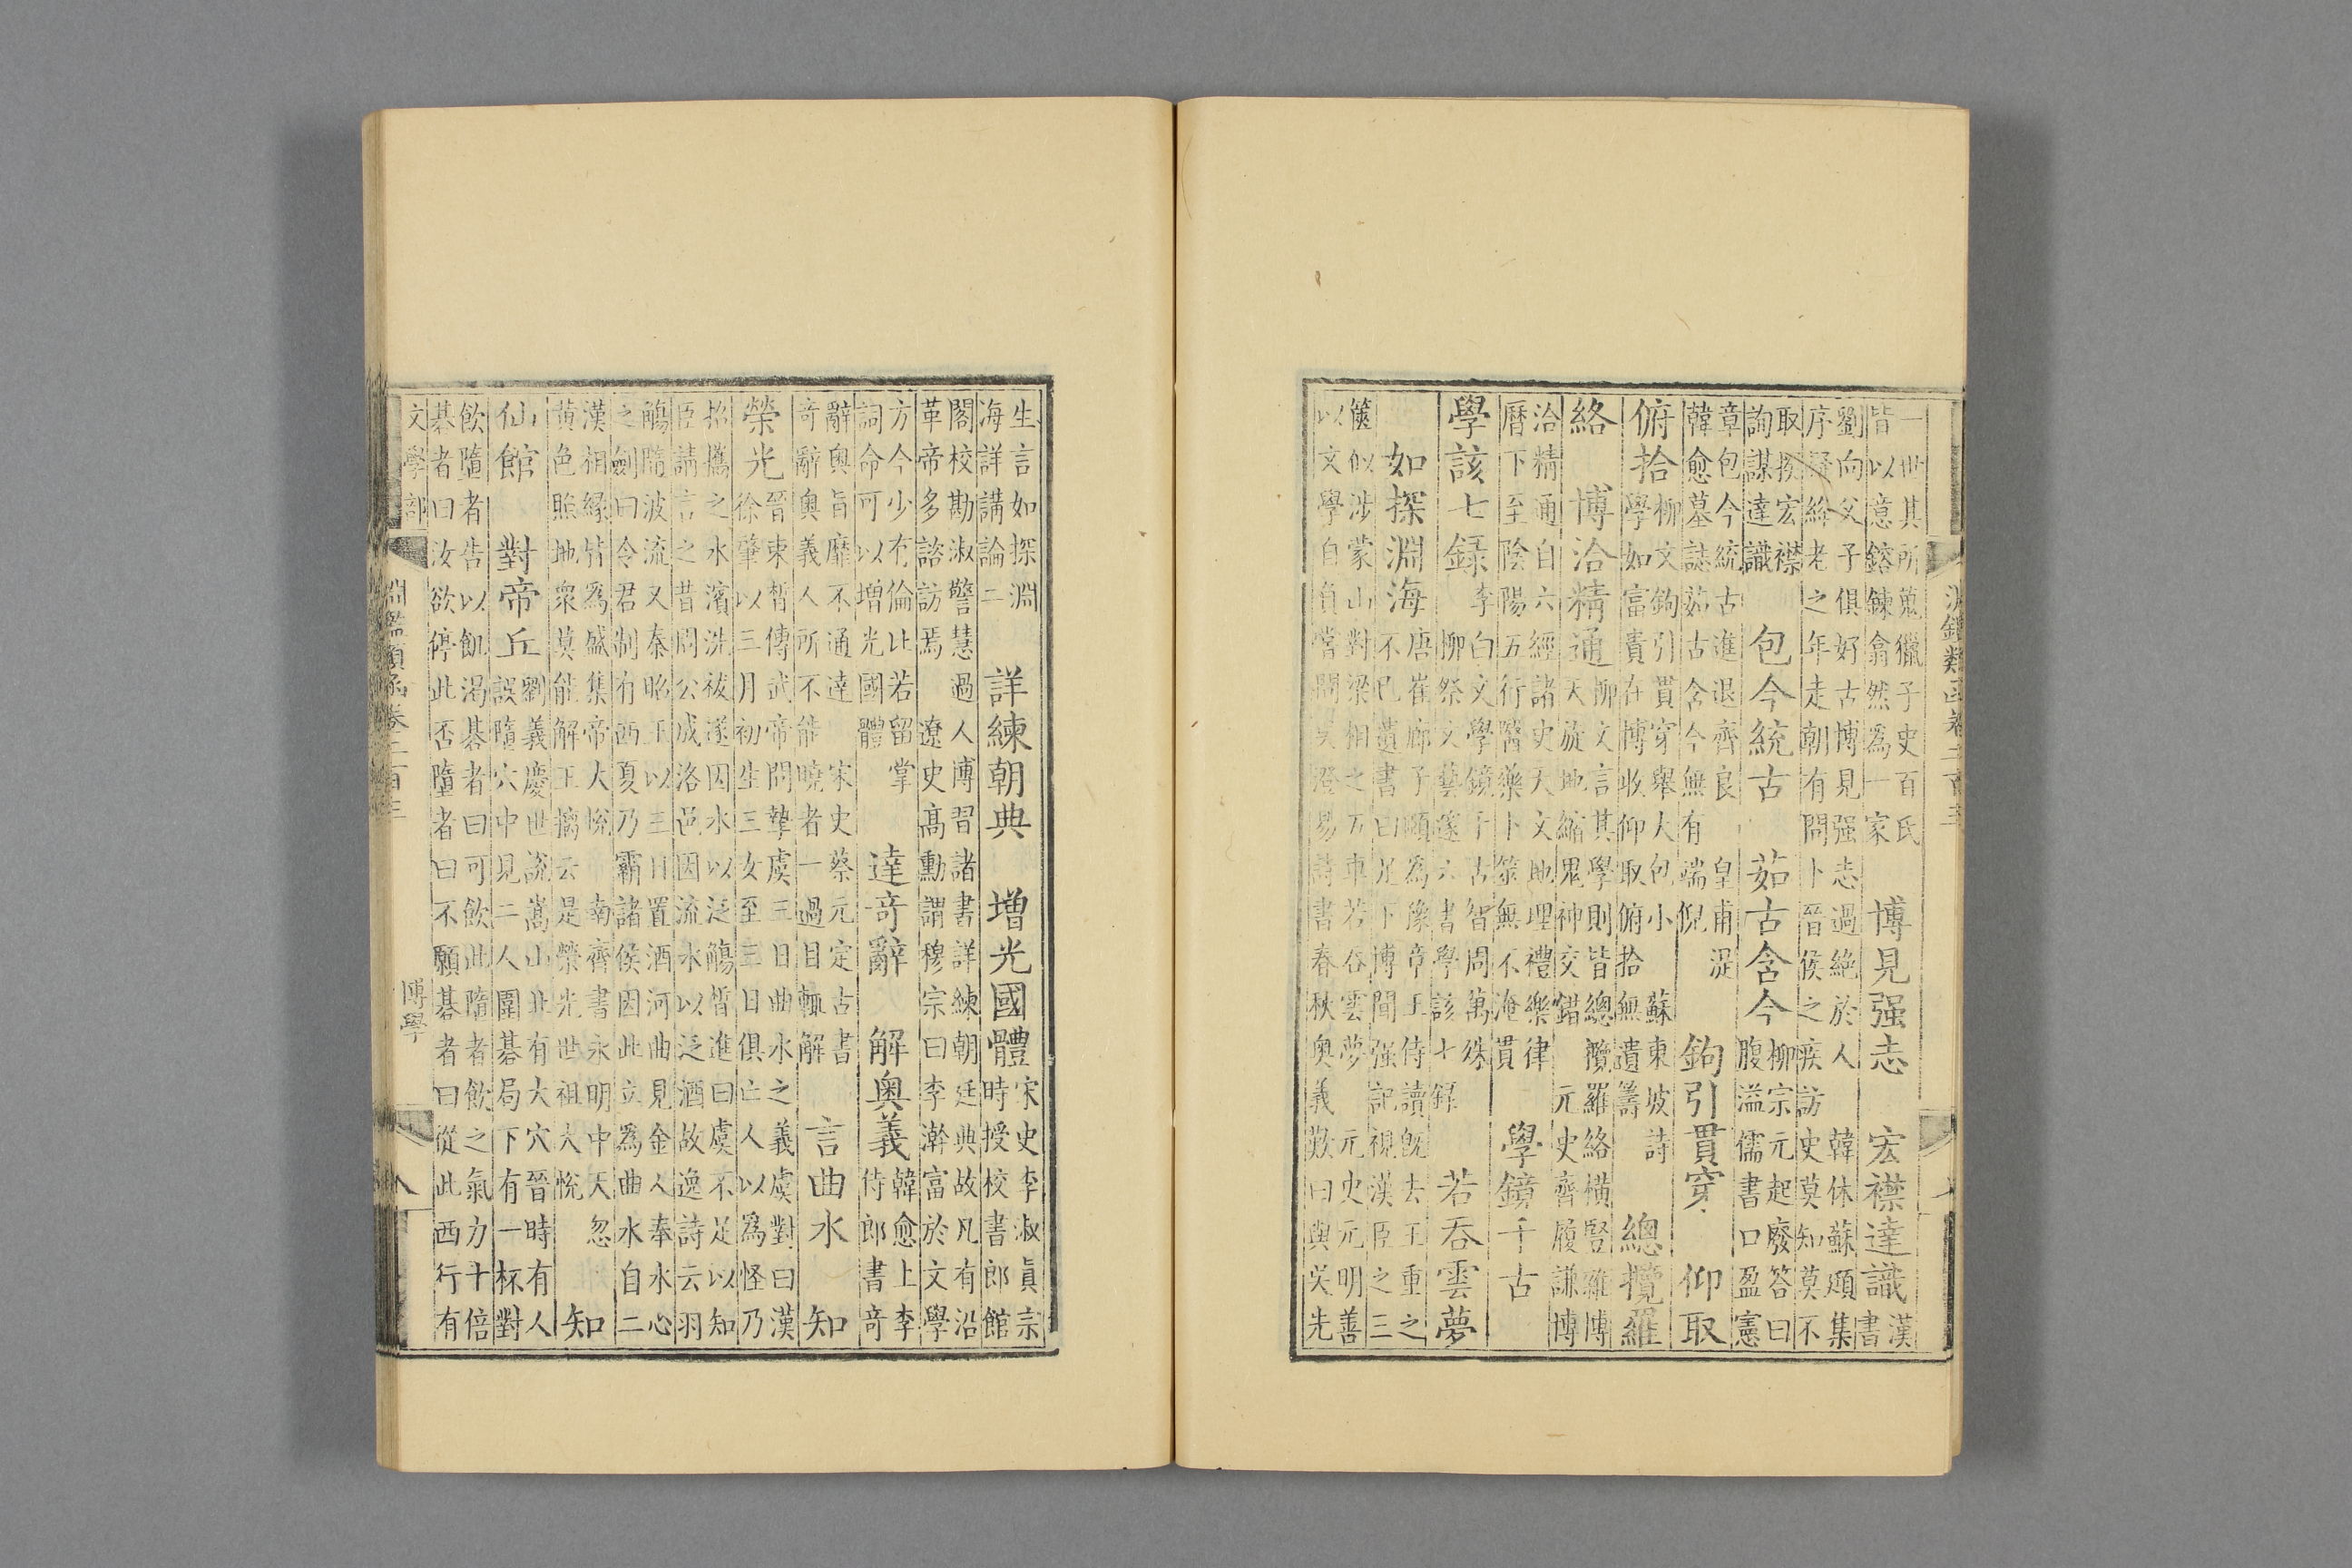 淵鑑類函卷二百三
一世其所蒐獵子史百氏
皆以意鎔鍊翕然爲一家
博見强志　宏襟達識
漢
書
劉向父子俱好古博見强志過絶於人　韓休蘇頲集
序疑絳老之年走朝有問卜晉侯之疾訪史莫知莫不
取揆宏襟
詢謀達識
包今統古　茹古含今
柳宗元起廢答曰
腹溢儒書口盈憲
章包今統古進退齊良　皇甫湜
韓愈墓誌茹古含今無有端倪
鉤引貫穿　仰取
俯拾
柳文鉤引貫穿舉大包小　蘇東坡詩
學如富賈在博收仰取俯拾無遺籌
總攬羅
絡　博洽精通
柳文言其學則皆總攬羅絡橫豎雜博
天旋地縮鬼神交錯　元史齊履謙博
洽精通自六經諸史天文地理禮樂律
曆下至陰陽五行醫藥卜筮無不淹貫
學鏡千古
學該七録
李白文學鏡千古智周萬殊
柳祭文藝邃六書學該七録
若吞雲夢
如探淵海
唐崔廊子頲爲豫章王侍讀既去王重之
不已遺書曰足下博聞强記視漢臣之三
篋似涉蒙山對梁相之五車若吞雲夢　元史元明善
以文學自負嘗聞吳澄易詩書春秋奥義歎曰與吳先
生言如探淵
海詳講論二
詳練朝典　增光國體
宋史李淑眞宗
時授校書郎館
閣校勘淑警慧過人博習諸書詳練朝廷典故凡有沿
革帝多諮訪焉　遼史髙勳謂穆宗曰李澣富於文學
方今少有倫比若留掌
詞命可以增光國體
達奇辭　解奥義
韓愈上李
侍郎書奇
辭奥旨靡不通達　宋史蔡元定古書
奇辭奥義人所不能曉者一過目輒解
言曲水　知
榮光
晉束晳傳武帝問摯虞三日曲水之義虞對曰漢
徐肇以三月初生三女至三日俱亡人以爲怪乃
招攜之水濱洗祓遂因水以泛觴晳進曰虞不足以知
臣請言之昔周公成洛邑因流水以泛酒故逸詩云羽
觴隨波流又秦昭王以三日置酒河曲見金人奉水心
之劍曰令君制有西夏乃霸諸侯因此立爲曲水自二
漢相緣皆爲盛集帝大悅　南齊書永明中天忽
黄色照地衆莫能解王摛云是榮光世祖大悅
知
仙館　對帝丘
劉義慶世說嵩山北有大穴晉時有人
誤墮穴中見二人圍碁局下有一杯對
飲墮者告以飢渴碁者曰可飲此墮者飲之氣力十倍
碁者曰汝欲停此否墮者曰不願碁者曰從此西行有
文學部
淵鑑類函卷二百三
博學
八